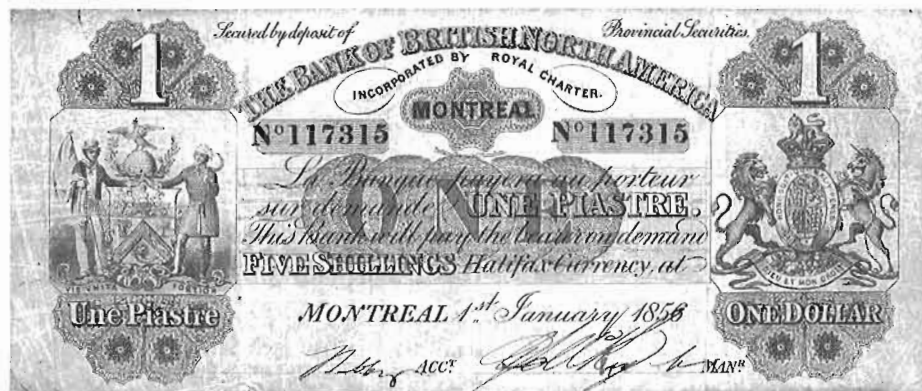 1 Secured by deposit of Provincial Securities. 1
THE BANK OF BRITISH NORTH AMERICA
INCORPORATED BY ROYAL CHARTER.
MONTREAL
Nº 117315 Nº 117315
ONE
La Banque payera au porteur
sur demande UNE PIASTRE.
This Bank will pay the bearer on demand
FIVE SHILLINGS Halifax Currency, at
VIS UNITA FORTIOR
DIEU ET MON DROIT
Une Piastre MONTREAL 1st January 1856 ONE DOLLAR
ACCT MANR